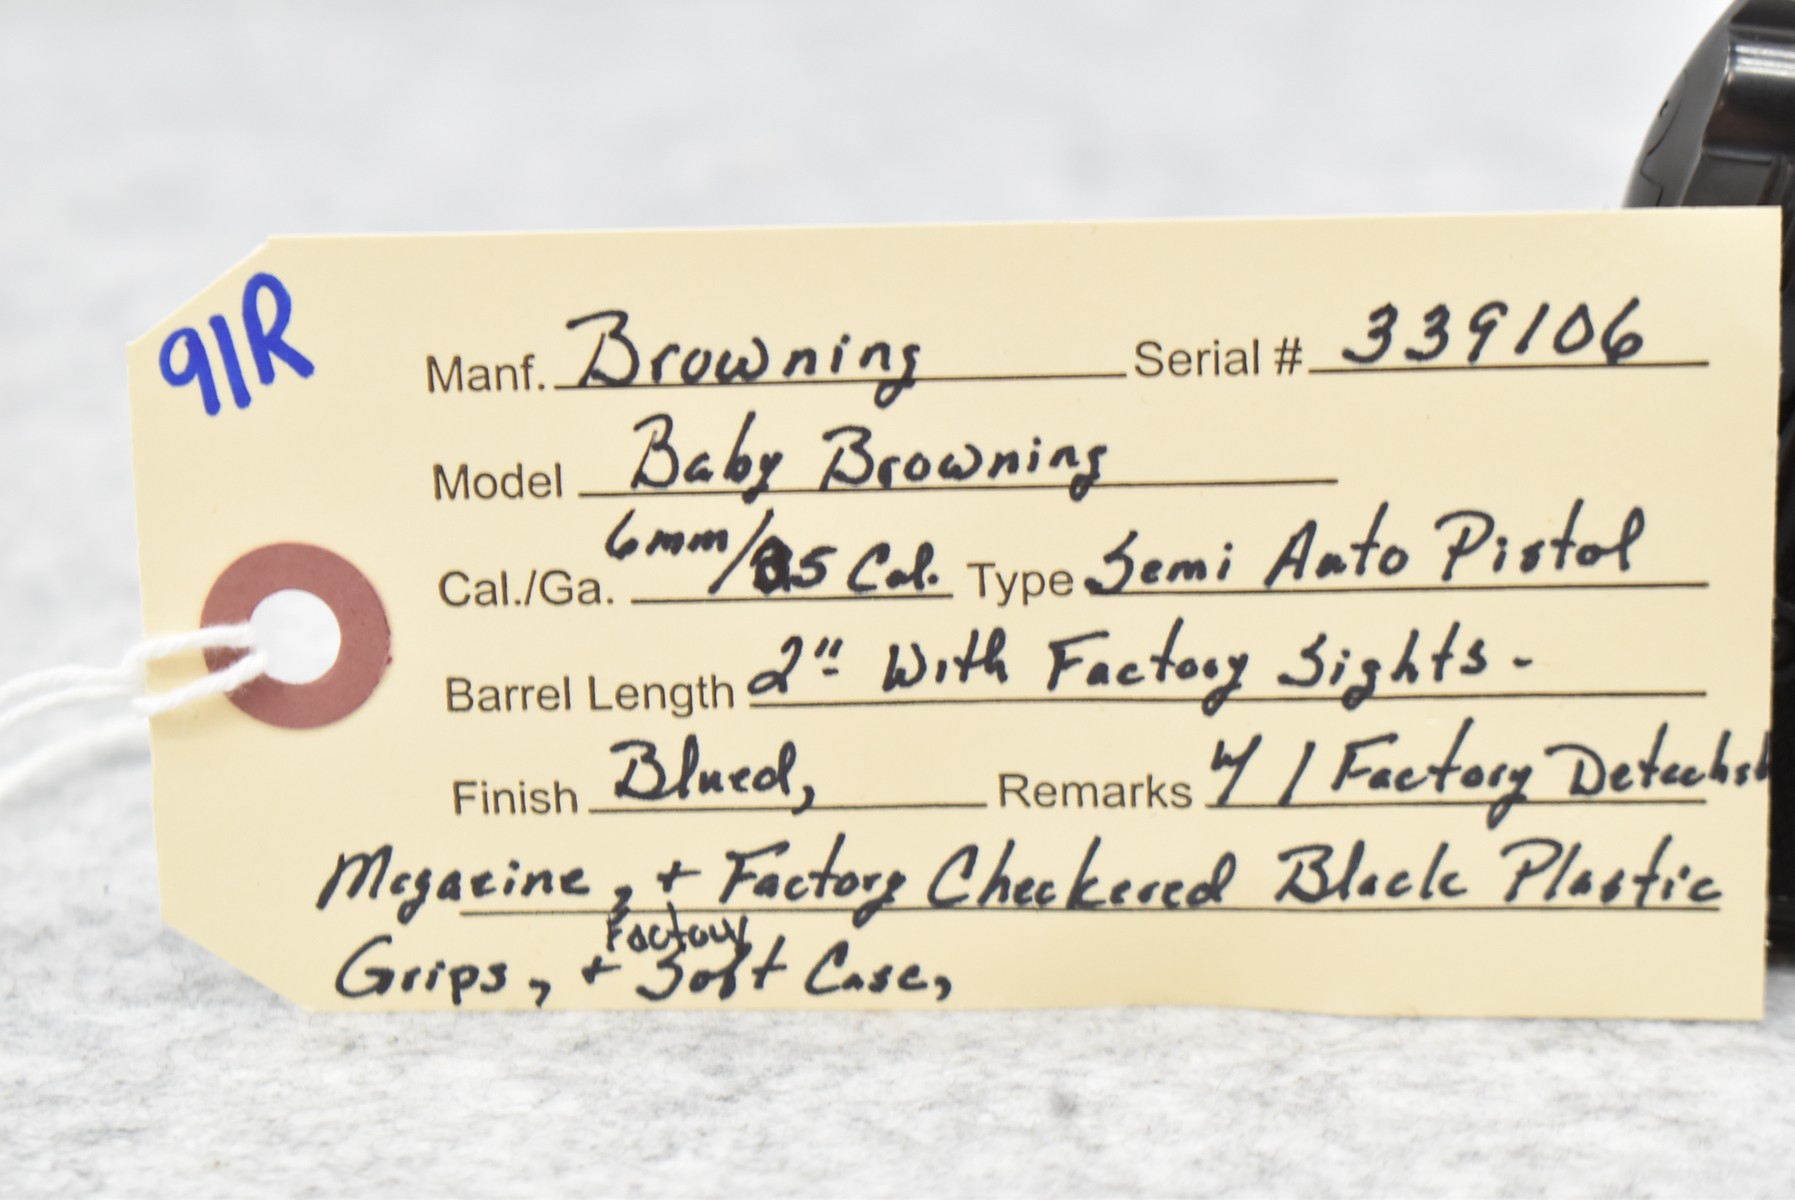 91R
Manf. Browning Serial # 339106
Model Baby Browning
Cal./Ga. 6mm/.25 Cal. Type Semi Auto Pistol
Barrel Length 2" With Factory Sights -
Finish Blued, Remarks W/ 1 Factory
Magazine, + Factory Checkered Black Plastic
Factory
Grips, + Soft Case,